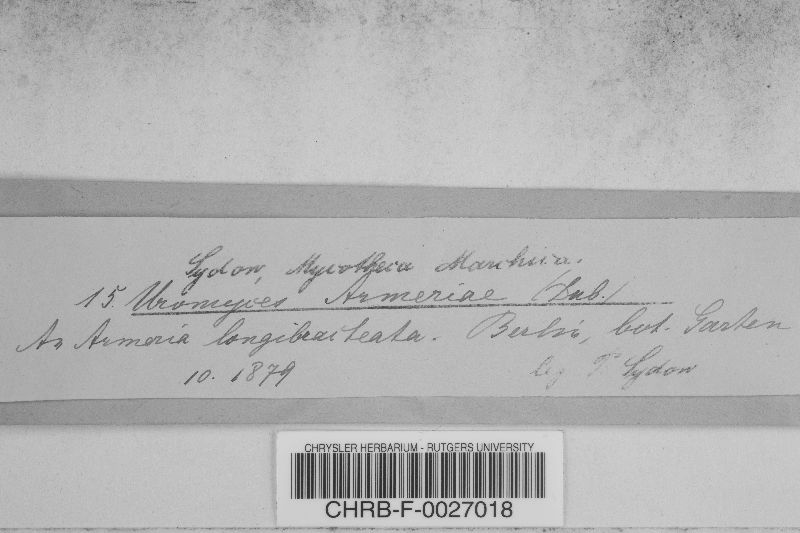 Sydow, Mycotheca Marchica.
15 Uromyces Armeriae (Lub.)
An Armeria longibracteata. Berlin, bot. Garten
10. 1879 leg P. Sydow
CHRYSLER HERBARIUM - RUTGERS UNIVERSITY
CHRB-F-0027018